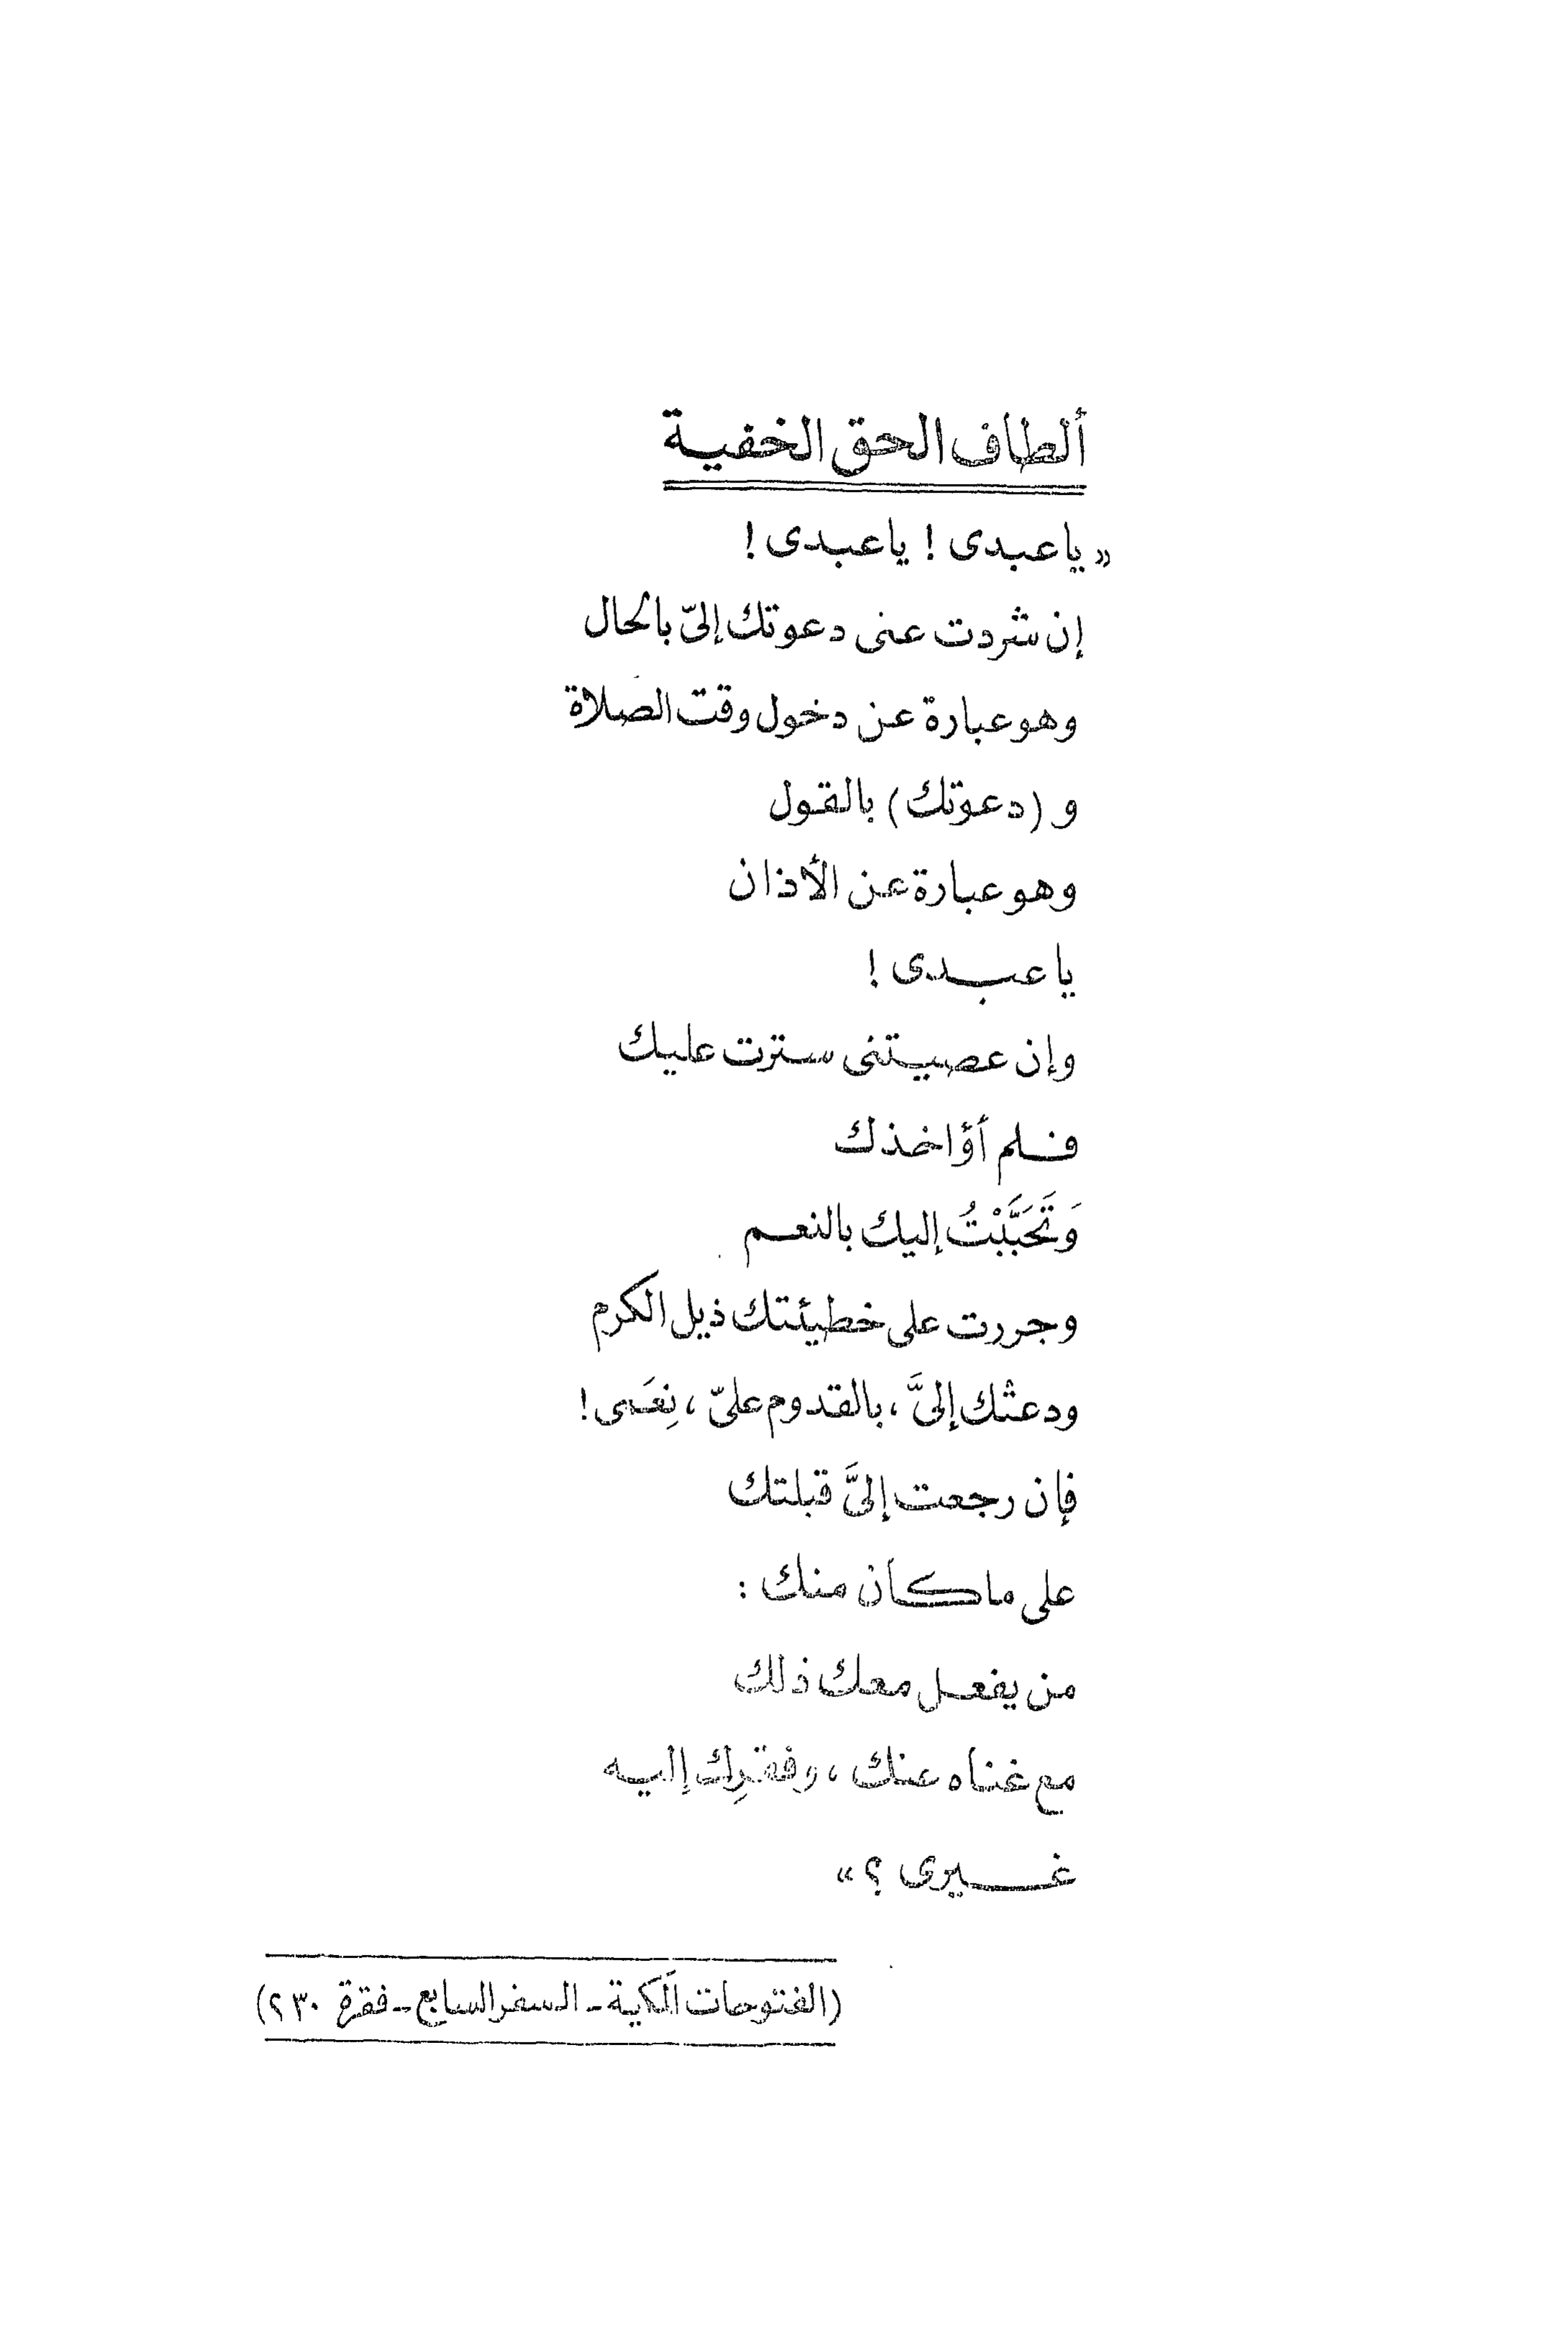 ألطاف الحق الخفية
« ياعبدى ! ياعبدى !
إن شردت عنى دعوتك إلىّ بالحال
وهو عبارة عن دخول وقت الصلاة
و (دعوتك) بالقول
وهو عبارة عن الأذان
ياعبدى !
وإن عصيتنى سترت عليك
فلم أؤاخذك
وَتَحَبَّبْتُ إليك بالنعم
وجررت على خطيئتك ذيل الكرم
ودعتْك إلىَّ ، بالقدوم علىّ ، نِعَمى !
فإن رجعت إلىَّ قبلتك
على ما كان منك :
من يفعل معك ذلك
مع غناه عنك ، وفقرِك إليه
غيرى ؟ »
(الفتوحات المكية ـ السفر السابع ـ فقرة ٢٣٠)